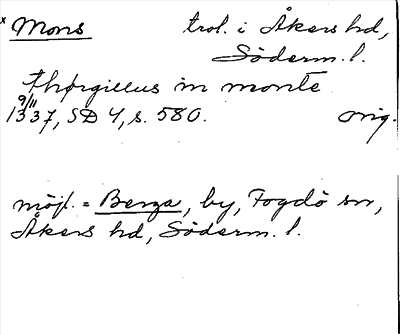 x Mons trol. i Åkers hd,
Söderm. l.
thørgillus in monte
9/11
1337, SD 4, s. 580. orig.
möjl. = Berga, by, Fogdö sn,
Åkers hd, Söderm. l.